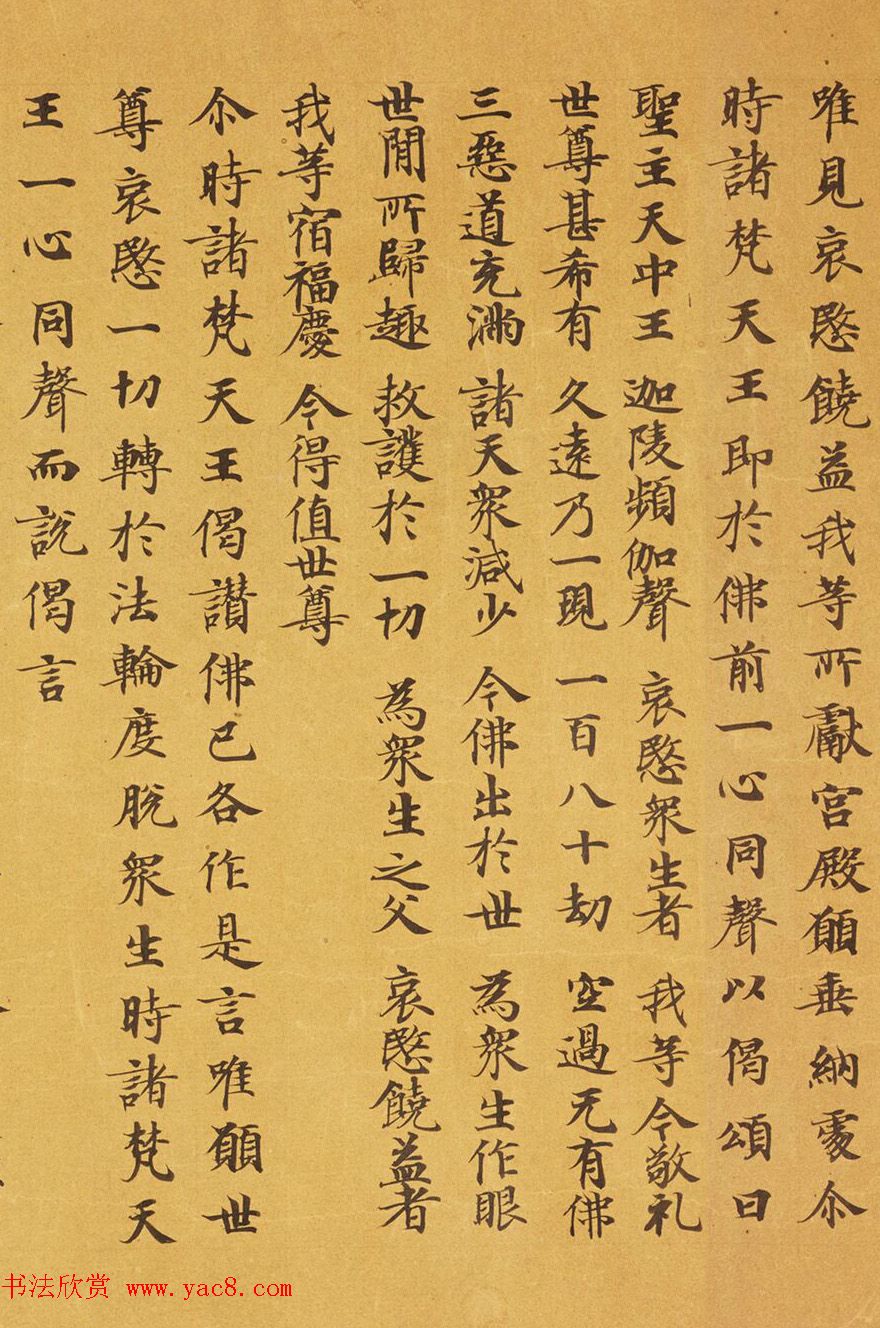 唯見哀愍饒益我等所獻宮殿願垂納處尒
時諸梵天王即於佛前一心同聲以偈頌曰
聖主天中王 迦陵頻伽聲 哀愍衆生者 我等今敬礼
世尊甚希有 久遠乃一現 一百八十劫 空過无有佛
三惡道充滿 諸天衆減少 今佛出於世 為衆生作眼
世閒所歸趣 救護於一切 為衆生之父 哀愍饒益者
我等宿福慶 今得值世尊
尒時諸梵天王偈讃佛已各作是言唯願世
尊哀愍一切轉於法輪度脫衆生時諸梵天
王一心同聲而說偈言
书法欣赏 www.yac8.com